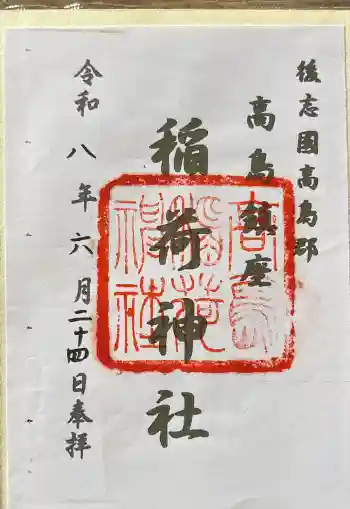 後志國高島郡
高島鎮座
稲荷神社
令和八年六月二十四日奉拝